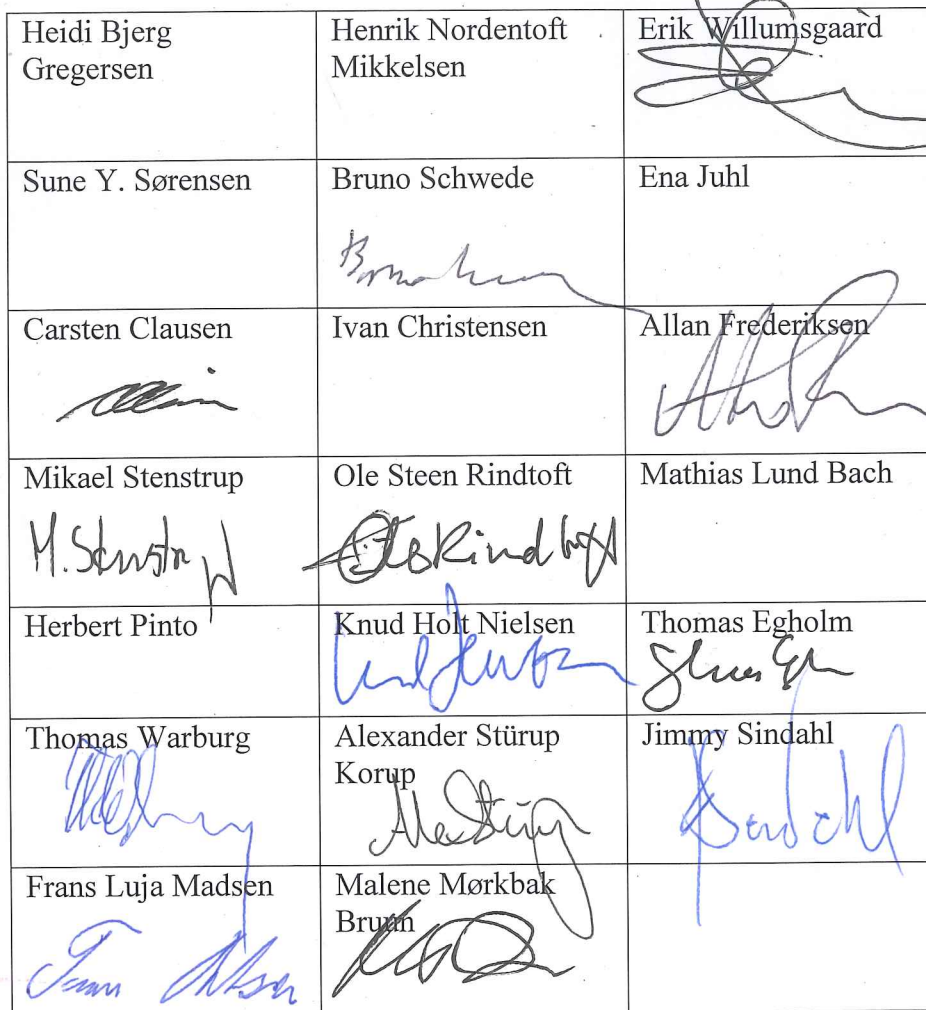 Heidi Bjerg
Gregersen
Henrik Nordentoft
Mikkelsen
Erik Willumsgaard
Sune Y. Sørensen
Bruno Schwede
Ena Juhl
Carsten Clausen
Ivan Christensen
Allan Frederiksen
Mikael Stenstrup
M. Stenstrup
Ole Steen Rindtoft
Mathias Lund Bach
Herbert Pinto
Knud Holt Nielsen
Thomas Egholm
Thomas Warburg
Alexander Stürup
Korup
Jimmy Sindahl
Frans Luja Madsen
Malene Mørkbak
Bruun